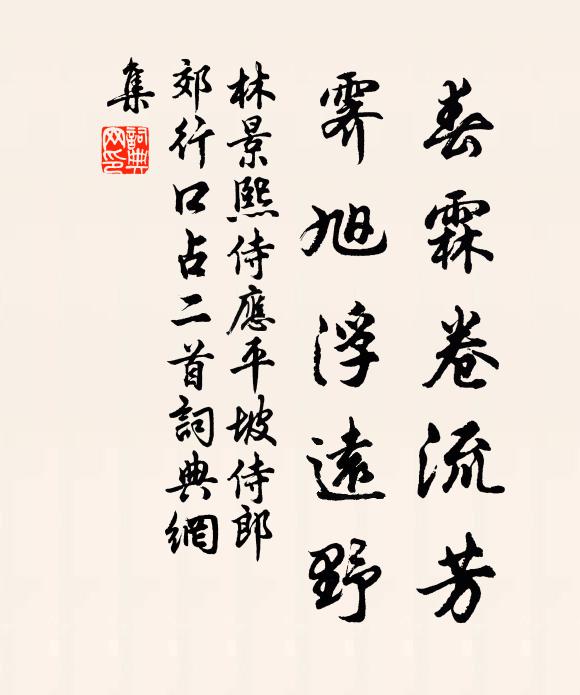 春霖卷流芳
霽旭浮遠野
林景熙侍應平坡侍郎
郊行口占二首詞典網
集
詞典網印